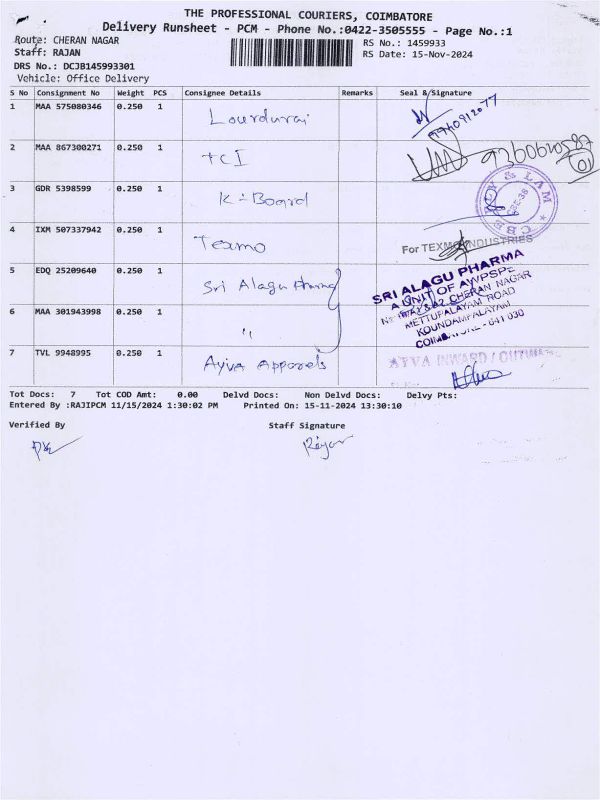 THE PROFESSIONAL COURIERS, COIMBATORE
Delivery Runsheet - PCM - Phone No.:0422-3505555 - Page No.:1
Route: CHERAN NAGAR
RS No.: 1459933
Staff: RAJAN
RS Date: 15-Nov-2024
DRS No.: DCJB145993301
Vehicle: Office Delivery
S No Consignment No Weight PCS Consignee Details Remarks Seal & Signature
1 MAA 575080346 0.250 1 Lourdurai
2 MAA 867300271 0.250 1 TCI
3 GDR 5398599 0.250 1 K-Board
4 IXM 507337942 0.250 1 Texmo
For TEXMO INDUSTRIES
5 EDQ 25209640 0.250 1 Sri Alagu Pharma
SRI ALAGU PHARMA
A UNIT OF AVVPSPE
CHERAN NAGAR
METTUPALAYAM ROAD
KOUNDAMPALAYAM
COIMBATORE - 641 030
6 MAA 301943998 0.250 1 "
7 TVL 9948995 0.250 1 Ayiva Apparels
AYVA INWARD /
Tot Docs: 7 Tot COD Amt: 0.00 Delvd Docs: Non Delvd Docs: Delvy Pts:
Entered By :RAJIPCM 11/15/2024 1:30:02 PM Printed On: 15-11-2024 13:30:10
Verified By Staff Signature
Rajan